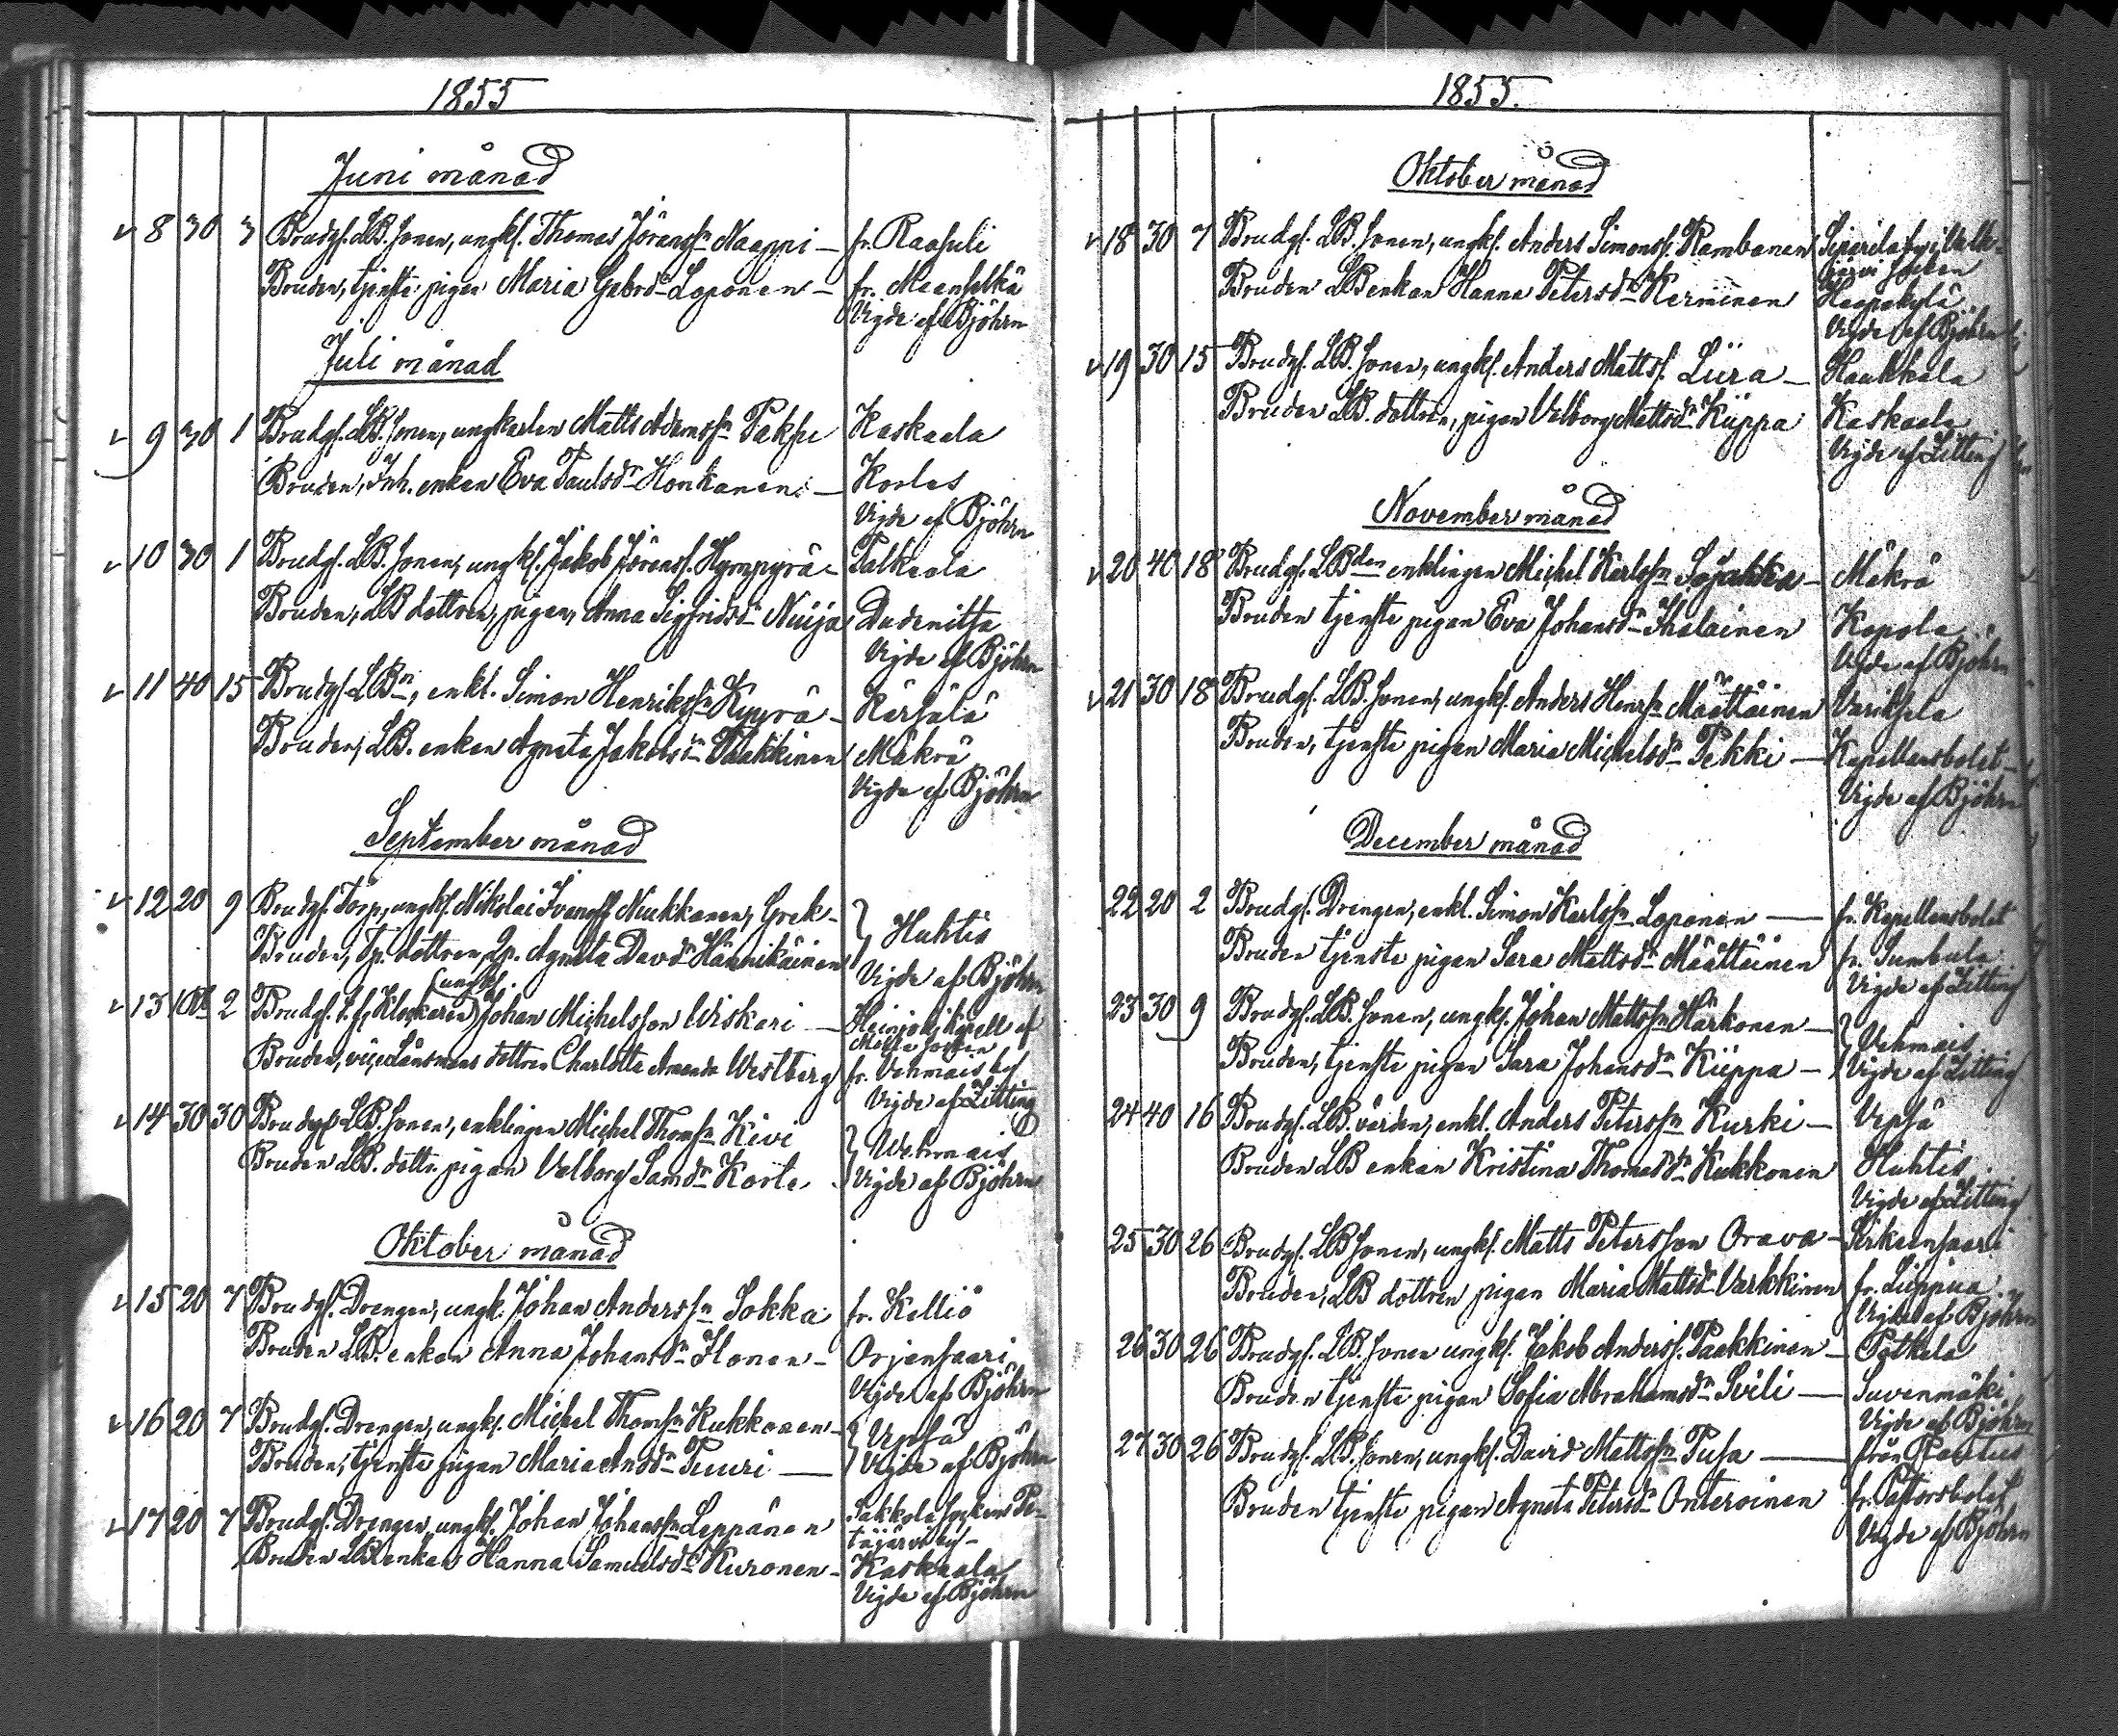 1855
Juni månad
8 30 3 Brudg. LB. sonen, ungk. Thomas Jöranss. Naappi — fr. Raasuli
Bruden, tjenste pigan Maria Gabrsdr Loponen — fr. Meenselkä
Vigde af Björhn
Juli månad
9 30 1 Brudg. LB. sonen, ungkarlen Matts Adamssn Paksu Kaskaala
Bruden, Inh. enkan Eva Paulsdr Honkanen — Korles
Vigde af Björhn
10 30 1 Brudg. LB. sonen, ungk. Jakob Jöranss. Hympyrä — Palkeala
Bruden, LB dottren, pigan, Anna Sigfridsdr Nuija Dudenitsa
Vigde af Björhn
11 40 15 Brudg. LBn, enkl. Simon Henrikssn Kyyrä — Kärsälä
Bruden, LB. enkan Agneta Jakobsdr Paakkinen Mäkrä
Vigde af Björhn
September månad
12 20 9 Brudg. Torp., ungk. Nikolai Ivanoff Niukkanen, Grek. } Huhtis
Bruden, Tp. dottren, Agneta Davdr Hännikäinen
Vigde af Björhn
(ungk.
13 2 Brudg. t.f. Klockaren) Johan Michelsson Wiskari — Heinjoki Kapell af
Mohla socken
Bruden, Länsmans dottren Charlotta Amanda Westberg fr. Vehmais by
Vigde af Zitting
14 30 30 Brudg. LB. sonen, enklingen Michel Thomssn Kivi } Wehmais
Bruden LB. dottr. pigan Valborg Samdr Korte
Vigde af Björhn
Oktober månad
15 20 7 Brudg. Drengen, ungk. Johan Anderssn Sokka fr. Kelliö
Bruden LB. enkan Anna Johansdr Ilonen — Orjansaari
Vigde af Björhn
16 20 7 Brudg. Drengen, ungk. Michel Thomssn Kukkonen } Vepsä
Bruden, tjenste pigan Maria Andsdr Tuuri — Vigde af Björhn
17 20 7 Brudg. Drengen, ungk. Johan Johanssn Leppänen Sakkola socken Pe-
täjärvi by —
Bruden LB enkan Hanna Samuelsdr Kuronen — Kaskaala
Vigde af Björhn
1855.
Oktober månad
18 30 7 Brudg. LB. sonen, ungk. Anders Simonss. Rambanen, i Valk-
järvi socken
Bruden LB enkan Hanna Petersdr Kerminen Haapakylä
Vigde af Björhn
19 30 15 Brudg. LB. sonen, ungk. Anders Mattss. Liira — Haukkala
Bruden LB. dottren, pigan Valborg Mattsdr Kiippa Kaskaala
Vigde af Zitting
November månad
20 40 18 Brudg. LBden enklingen Michel Karlssn Sojakka — Mäkrä
Bruden tjenste pigan Eva Johansdr Ihalainen Kapola
Vigde af Björhn
21 30 18 Brudg. LB. sonen, ungk. Anders Henrssn Määttäinen Variksela
Bruden, tjenste pigan Maria Michelsdr Pekki — Kapellansbolet
Vigde af Björhn
December månad
22 20 2 Brudg. Drengen, enkl. Simon Karlssn Loponen — fr. Kapellansbolet
Bruden tjenste pigan Sara Mattsdr Määttäinen fr. Sumbula
Vigde af Zitting
23 30 9 Brudg. LB. sonen, ungk. Johan Mattssn Härkonen — } Vehmais
Bruden, tjenste pigan Sara Johansdr Kiippa — Vigde af Zitting
24 40 16 Brudg. LB. värden, enkl. Anders Peterssn Kurki — Vepsä
Bruden LB enkan Kristina Thomasdr Kukkonen Huhtis
Vigde af Zitting
25 30 26 Brudg. LB sonen, ungk. Matts Petersson Orava — Kirkensaari
Bruden, LB dottren pigan Maria Mattsdr Varkkinen fr. Lippua
Vigde af Björhn
26 30 26 Brudg. LB. sonen ungk. Jakob Anderss. Paakkinen — Pölkelä
Bruden tjenste pigan Sofia Abrahamsdr Svili — Suvenmäki
Vigde af Björhn
27 30 26 Brudg. LB. sonen, ungk. David Mattssn Pusa — från Rautus
Bruden tjenste pigan Agneta Petersdr Onteroinen fr. Pastorsbolet
Vigde af Björhn